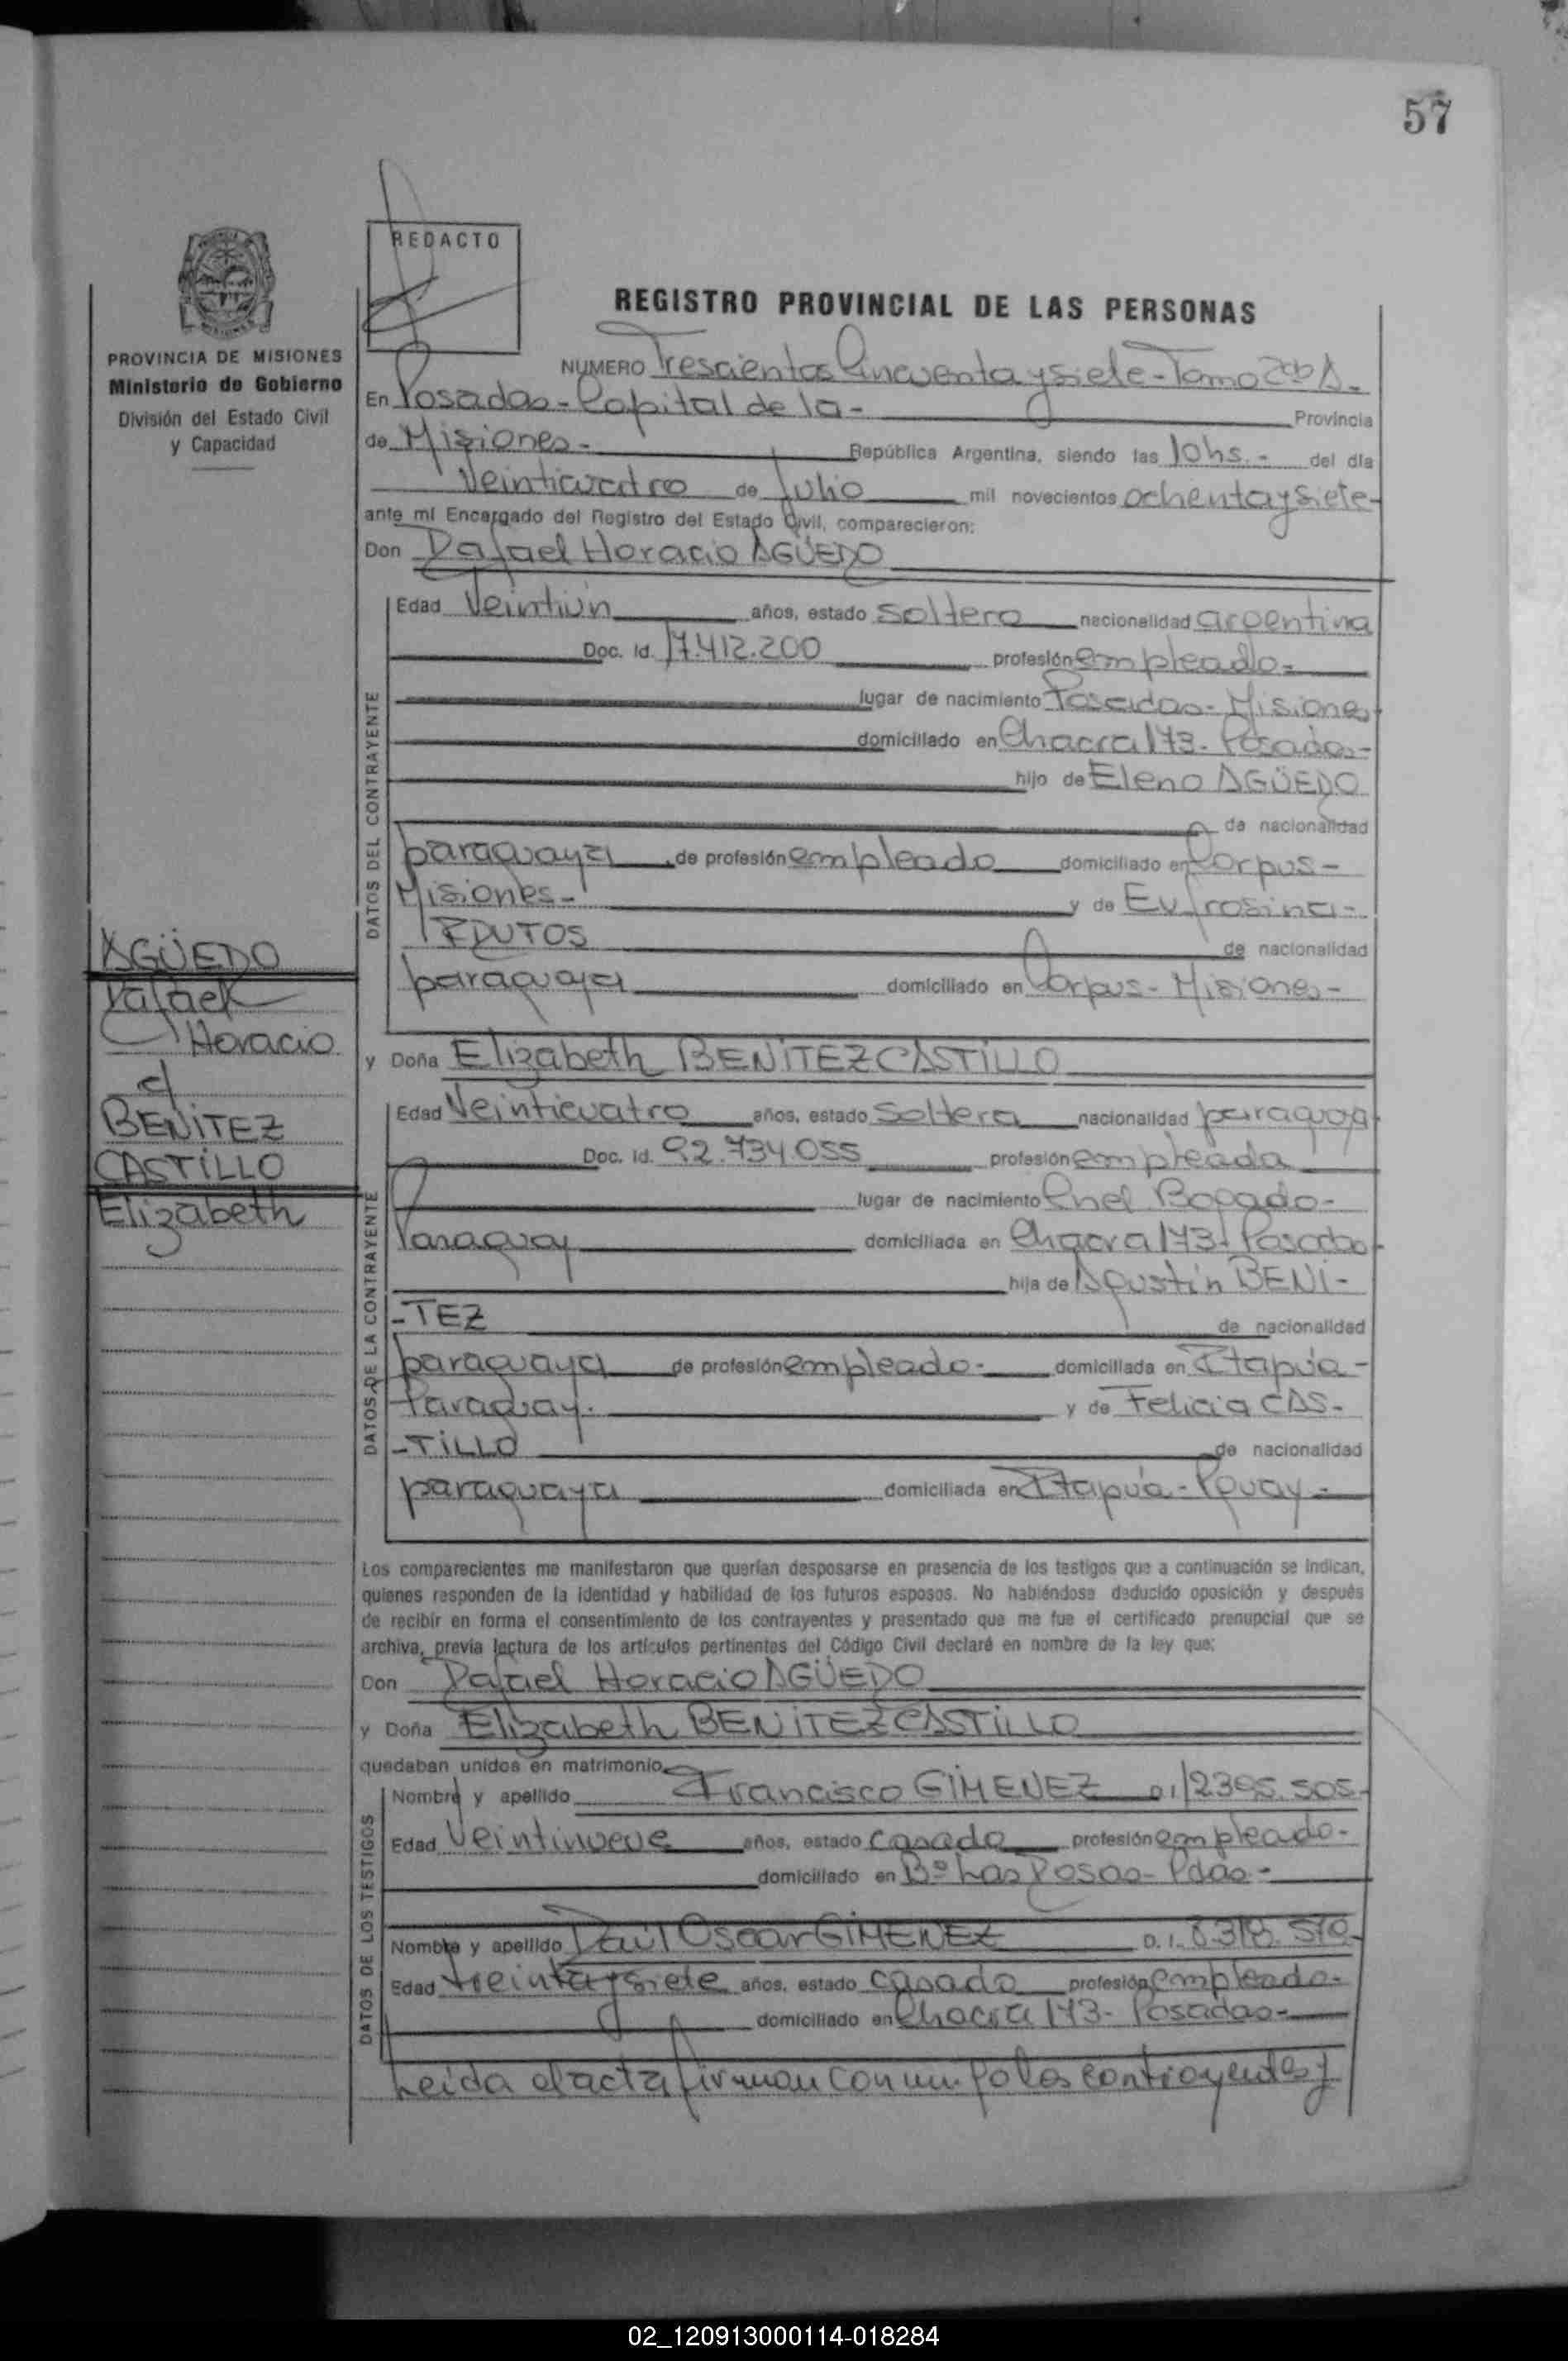 57
REDACTO
REGISTRO PROVINCIAL DE LAS PERSONAS
PROVINCIA DE MISIONES
Ministerio de Gobierno
División del Estado Civil
y Capacidad
NUMERO Trescientos Cincuenta y siete - Tomo 2do A.-
En Posadas - Capital de la - Provincia
de Misiones - República Argentina, siendo las 10hs.- del día
Veinticuatro de Julio mil novecientos ochenta y siete-
ante mí Encargado del Registro del Estado Civil, comparecieron:
Don Rafael Horacio AGÜEDO
DATOS DEL CONTRAYENTE
Edad Veintiún años, estado soltero nacionalidad argentina
Doc. Id. 17.412.200 profesión empleado-
lugar de nacimiento Posadas - Misiones
domiciliado en Chacra 173 - Posadas-
hijo de Eleno AGÜEDO
de nacionalidad
paraguaya de profesión empleado domiciliado en Corpus -
Misiones - y de Eufrosina -
de nacionalidad
paraguaya domiciliado en Corpus - Misiones -
AGÜEDO
Rafael
Horacio
c/
BENiTEZ
CASTiLLO
Elizabeth
y Doña Elizabeth BENiTEZ CASTiLLO
DATOS DE LA CONTRAYENTE
Edad Veinticuatro años, estado Soltera nacionalidad paraguaya
Doc. Id. 92.734.055 profesión empleada
lugar de nacimiento Cnel Bogado -
Paraguay domiciliada en Chacra 173 - Posadas
hija de Agustín BENi-
-TEZ de nacionalidad
paraguaya de profesión empleado - domiciliada en Itapúa -
Paraguay. y de Felicia CAS-
-TiLLO de nacionalidad
paraguaya domiciliada en Itapúa - Pguay -
Los comparecientes me manifestaron que querían desposarse en presencia de los testigos que a continuación se indican,
quienes responden de la identidad y habilidad de los futuros esposos. No habiéndose deducido oposición y después
de recibir en forma el consentimiento de los contrayentes y presentado que me fue el certificado prenupcial que se
archiva, previa lectura de los artículos pertinentes del Código Civil declaré en nombre de la ley que:
Don Rafael Horacio AGÜEDO
y Doña Elizabeth BENiTEZ CASTiLLO
quedaban unidos en matrimonio
DATOS DE LOS TESTIGOS
Nombre y apellido Francisco GiMENEZ D.I. 12.395.505-
Edad Veintinueve años, estado casado profesión empleado-
domiciliado en Bº Las Rosas - Pdas -
Nombre y apellido Raúl Oscar GiMENEZ D.I.
Edad treinta y siete años, estado casado profesión empleado-
domiciliado en Chacra 173 - Posadas -
Leida el acta firman conmigo los contrayentes y
02_120913000114-018284